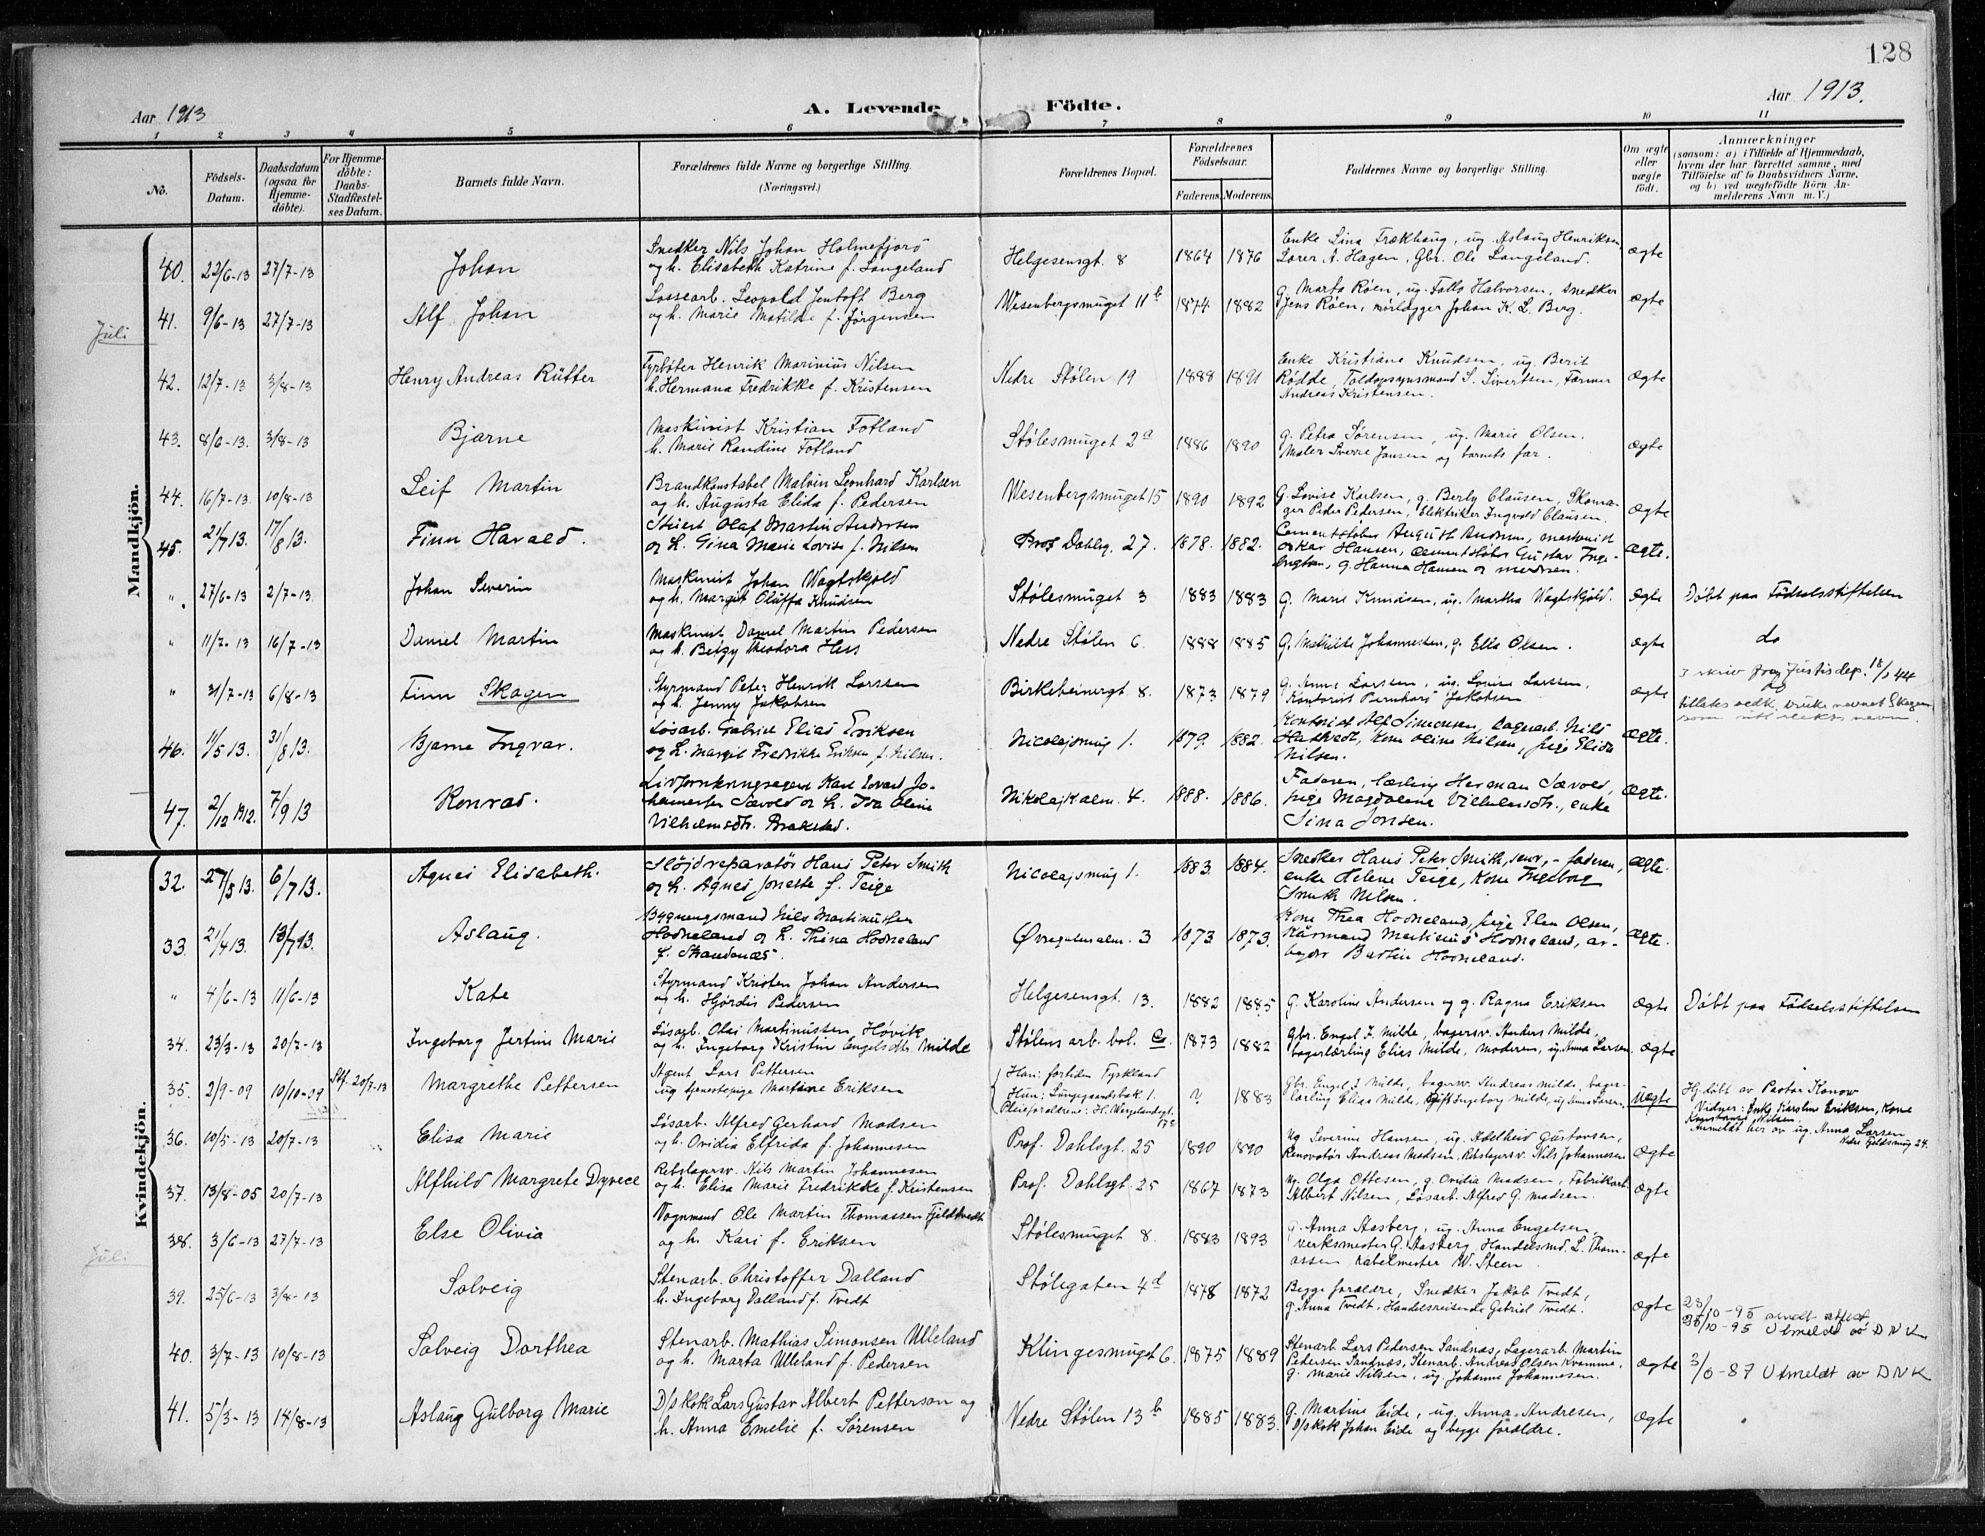 128
Aar 1913
A. Levende Födte.
Aar 1913.
1 2 3 4 5 6 7 8 9 10 11
No.
Födsels-Datum.
Daabsdatum (ogsaa for Hjemme-döbte).
For Hjemme-döbte: Daabs-Stadfæstel-ses Datum.
Barnets fulde Navn.
Forældrenes fulde Navne og borgerlige Stilling. (Næringsvei.)
Forældrenes Bopæl.
Forældrenes Födselsaar.
Faderens. Moderens.
Faddernes Navne og borgerlige Stilling.
Om ægte eller uægte födt.
Anmærkninger
(saasom: a) i Tilfælde af Hjemmedaab, hvem der har forrettet samme, med Tilföielse af to Daabsvidners Navne, og b) ved uægtefödte Börn An-melderens Navn m.V.)
Mandkjön.
Juli
40. 22/6-13 27/7-13 Johan Snedker Nils Johan Holmefjord Helgesensgt. 8 1864 1876 Enke Lina Trækhaug, ug. Aslaug Henriksen ægte
og h. Elisabeth Katrine f. Langeland Lærer A. Hagen, Gbr. Ole Langeland.
41. 9/6-13 27/7-13 Alf Johan Lossearb. Leopold Jentoft Berg Wesenbergsmuget 11b 1874 1882 g. Marta Røen, ug. Falla Halvorsen, Snedker ægte
og h. Marie Matilde f. Jørgensen Jens Røen, Johan K. L. Berg.
42. 12/7-13 3/8-13 Henry Andreas Rütter Fyrbøter Henrik Marinius Nilsen Nedre Stølen 19 1888 1891 Enke Kristiane Knudsen, ug. Berit ægte
h. Hermana Fredrikke f. Kristensen Rødde, Toldopsynsmand S. Sivertsen, Farmer
Andreas Kristensen.
43. 8/6-13. 3/8-13 Bjarne Maskinist Kristian Fotland Stølesmuget 2a 1886 1890 g. Petra Sørensen, ug. Marie Olsen. ægte
h. Marie Randine Fotland Maler Sverre Jansen og barnets far.
44. 16/7-13. 10/8-13 Leif Martin Brandkonstabel Malvin Leonhard Karlsen Wesenbergsmuget 15 1890 1892 G. Lovise Karlsen, g. Berly Clausen, Skoma- ægte
og h. Augusta Elida f. Pedersen ger Peder Pedersen, Elektriker Ingvald Clausen.
45. 21/7 13. 17/8 13. Finn Harald. Stuert Olaf Martin Andersen Prof Dahlsg. 27. 1878. 1882. Cementstøber August maskinist ægte.
og h. Gina Marie Lovise f. Nilsen Oskar Hansen, Cementstøber Gustav Inge-
g. Hanna Hansen og moderen.
" 27/6-13 2/7-13 Johan Severin Maskinist Johan Wagtskjold Stølesmuget 3 1883 1883 G. Marie Knudsen, ug. Martha Wagtskjold. ægte Døbt paa Fødselsstiftelsen
og h. Margit Oluffa Knudsen
" 11/7-13 16/7-13 Daniel Martin Maskinist Daniel Martin Pedersen Nedre Stølen 6. 1888 1885 G. Mathilde Johannessen, g. Ella Olsen. ægte do
og h. Betzy Theodora Hess
" 31/7-13 6/8-13 Finn Skagen Styrmand Peter Henrik Larssen Birkebeinergt 8. 1873 1879 g. Anna Larssen, ug. Louise Larssen, ægte I skriv fra Justisdep. 18/1 44
og h. Jenny Jakobsen Kontorist Bernhard Jakobsen tillates vedk. bruke navnet Skagen
som slektsnavn.
46. 11/5 13. 31/8 13. Bjarne Ingvar. Løsarb. Gabriel Elias Eriksen Nicolajsmug 1. 1879. 1882. Kontorist Alf Simonsen, Lagerarb. Nils ægte.
og h. Margit Fredrikke Eriksen f. Nilsen. Hatlevedt, Kone Oline Nilsen, pige Elida
Nilsen.
47. 2/12 1912. 7/9 13 Konrad. Livforsikringsagent Karl Edvard Jo- Nikolajkalm. 4. 1888. 1886. Faderen, lærling Herman Sævold, ægte.
hannessen Sævold og h. Ida Oline pige Magdalene Vilhelmsdtr., enke
Vilhelmsdtr. Brakstad. Sina Jonsen.
Kvindekjön.
Juli
32. 27/5 13. 6/7 13. Agnes Elisabeth. Sløjdreparatør Hans Peter Smith Nicolajsmug 1. 1883 1884. Snedker Hans Peter Smith, senr, - faderen, ægte.
og h. Agnes Jonette f. Teige enke Helene Teige, Kone Ingeborg
Smith Nilsen.
33. 21/4 13. 13/7 13. Aslaug. Bygningsmand Nils Martinussen Øvregatenalm. 3 1873 1873. Kone Thea Hodneland, pige Elen Olsen, ægte.
Hodneland og h. Thina Hodneland Martinus Hodneland, ar-
f. Strandenæs. beyder Bertin Hodneland.
" 4/6-13 11/6-13 Kate Styrmand Kristen Johan Andersen Helgesensgt. 13. 1882 1885 G. Karoline Andersen og g. Ragna Eriksen ægte Døbt paa Fødselsstiftelsen
og h. Hjørdis Pedersen
34. 23/3-13 20/7-13 Ingeborg Jertine Marie Løsarb. Olai Martinussen Høvik Stølens arb. bol. C. 1873 1882 Gbr. Engel J. Milde, bagersv. Anders Milde, ægte
og h. Ingeborg Kristin Engelsdtr. Milde bagerlærling Elias Milde, moderen, ug. Anna Larsen.
35. 2/9-09 10/10-09 Stf. 20/7-13 Margrethe Pettersen Agent Lars Pettersen Han: fortiden Tyskland ? 1883 Gbr. Engel J. Milde, bagersv. Andreas Milde, bager- uægte Hj. døbt av Pastor Konow
ug tjenestepige Martine Eriksen Hun: Lungegaardsbak 1. lærling Elias Milde, gift Ingeborg Milde, ug. Anna Larsen. Vidner: Enke Karoline Eriksen, Kone
Pleieforældrene: H. Wergelandsgt. 17c Nilsen
Anmeldt her av ug. Anna Larsen
Nedre Fjeldsmug 24.
36. 10/5-13 20/7-13 Elisa Marie Løsarb. Alfred Gerhard Madsen Prof. Dahlsgt. 25 1890 1890 Ug. Severine Hansen, ug. Adelheid Gustavsen, ægte
og h. Ovidia Elfrida f. Johannesen Renovatør Andreas Madsen, Rebslagersv. Nils Johannesen
37. 13/8-05 20/7-13 Alfhild Margrete Dyvece Rebslagersv. Nils Martin Johannesen Prof. Dahlsgt. 25 1867 1873 Ug. Olga Ottesen, g. Ovidia Madsen, Fabrikarb. ægte
og h. Elisa Marie Fredrikke f. Kristensen Albert Nilsen, Løsarb. Alfred G. Madsen.
38. 3/6-13 27/7-13 Else Olivia Vognmand Ole Martin Thomassen Fjeldtvedt Stølesmuget 8. 1883 1893 g. Anna Aasberg, ug. Anna Engelsen, ægte
og h. Kari f. Eriksen verksmester G. Aasberg, Handelsmd. L. Thom-
assen, Kabelmester W. Steen
39. 25/6-13 3/8-13 Solveig Stenarb. Christoffer Dalland Stølegaten 4d 1878 1872 Begge forældre, Snedker Jakob Tvedt, ægte 23/10-95
h. Ingeborg Dalland f. Tvedt g. Anna Tvedt, Handelsreisende Gabriel Tvedt. 25/10-95 Utmeldt av DNK
40. 3/7-13 10/8-13 Solveig Dorthea Stenarb. Mathias Simonsen Ulleland Klingesmuget 6. 1875 1889 Stenarb. Lars Pedersen Sandnæs, Lagerarb. Martin ægte 3/0-87 Utmeldt av DNK
og h. Marta Ulleland f. Pedersen Pedersen Sandnæs, Stenarb. Andreas Olsen Kvamme,
g. Marie Nilsen, ug. Johanne Johannesen.
41. 5/3-13 14/8-13 Aslaug Gulborg Marie D/s kok Lars Gustav Albert Petterson og Nedre Stølen 13b 1885 1883. g. Martine Eide, ug. Anna Andresen, ægte
h. Anna Emelie f. Sørensen D/s kok Johan Eide og begge forældre.